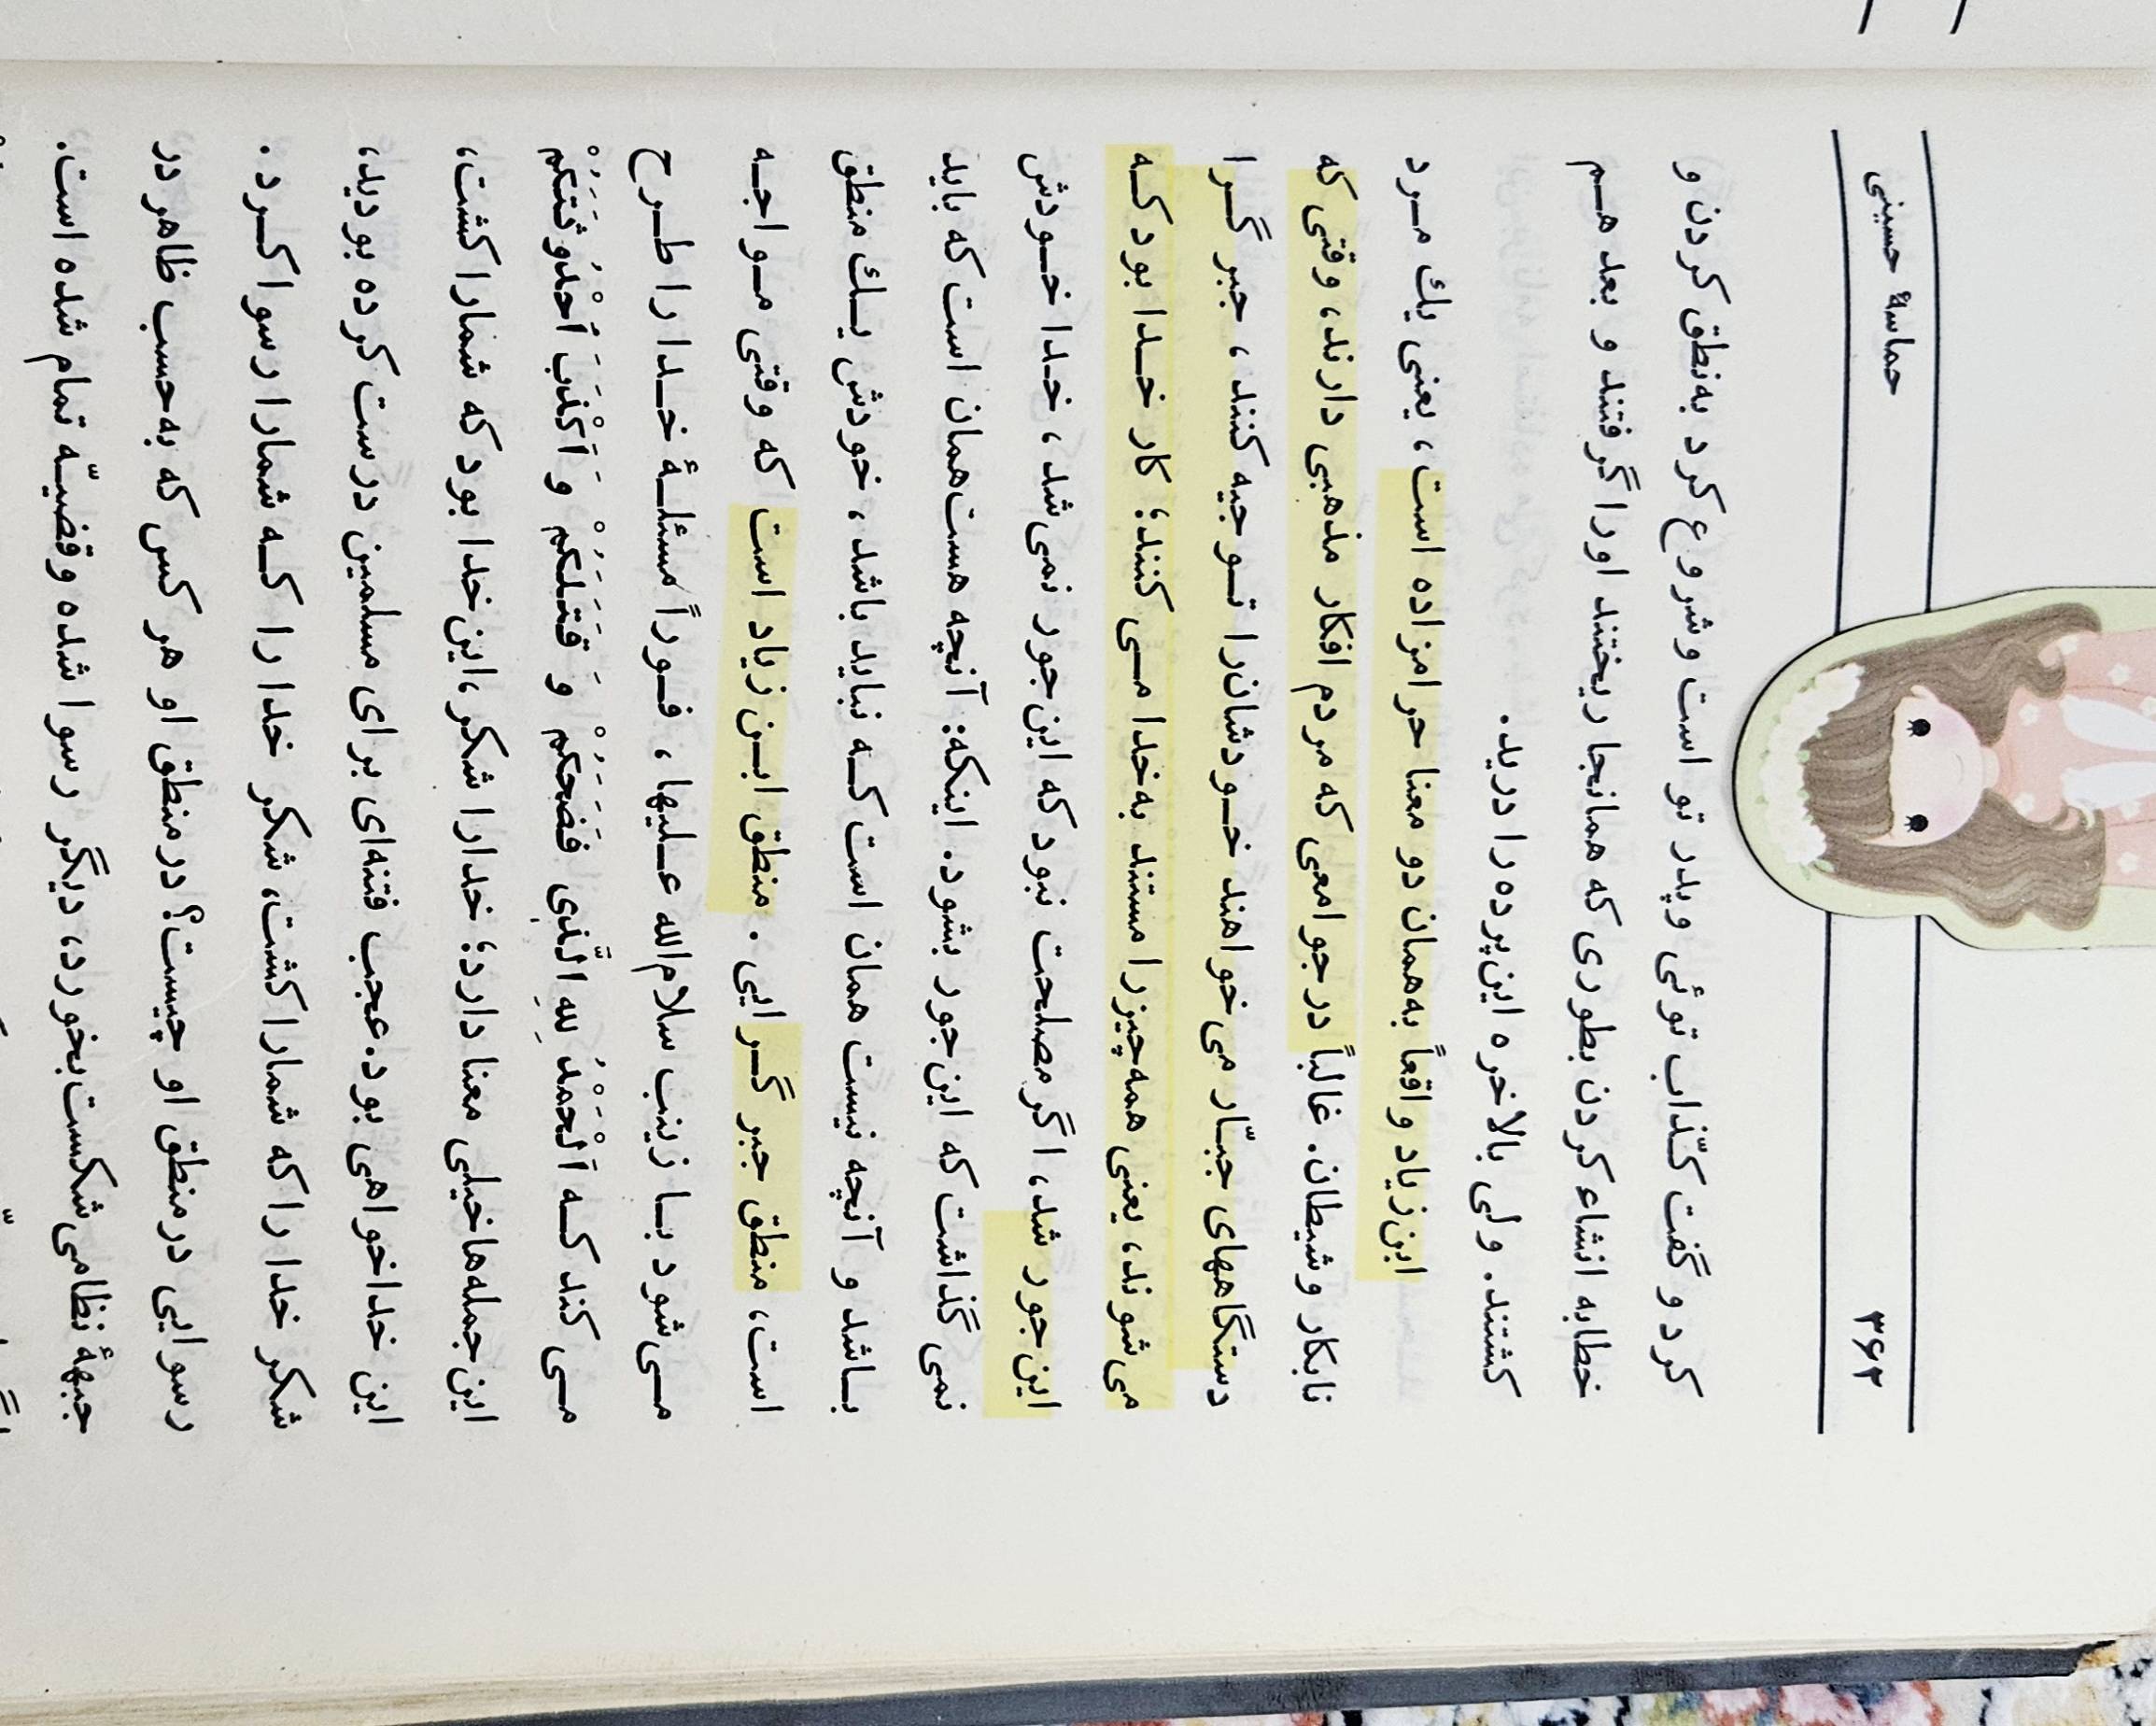 ۳۶۲ حماسهٔ حسینی
کرد و گفت کذّاب توئی و پدر تو است و شروع کرد به‌نطق کردن و
خطابه انشاء کردن بطوری که همانجا ریختند او را گرفتند و بعد هم
کشتند. ولی بالاخره این‌پرده را درید.
ابن‌زیاد واقعاً به‌همان دو معنا حرامزاده است، یعنی یك مرد
نابکار و شیطان. غالباً در جوامعی که مردم افکار مذهبی دارند، وقتی که
دستگاههای جبّار می‌خواهند خودشان‌را توجیه کنند، جبر گرا
می‌شوند، یعنی همه‌چیز را مستند به‌خدا می‌کنند؛ کار خدا بود که
این‌جور شد، اگر مصلحت نبود که این‌جور نمی‌شد، خدا خودش
نمی‌گذاشت که این‌جور بشود. اینکه: آنچه هست‌همان است که باید
باشد و آنچه نیست همان است که نباید باشد، خودش یك منطق
است، منطق جبر گرایی. منطق ابن‌زیاد است که وقتی مواجه
می‌شود با زینب سلام‌الله علیها، فوراً مسئلهٔ خدا را طرح
می‌کند که اَلْحَمْدُ لِلّهِ الَّذِی فَضَحَکُمْ وَ قَتَلَکُمْ وَ اَکْذَبَ اُحْدُوثَتَکُمْ
این‌جمله‌ها خیلی معنا دارد؛ خدا را شکر، این‌خدا بود که شما را کشت،
این خداخواهی بود. عجب فتنه‌ای برای مسلمین درست کرده بودید،
شکر خدا را که شما را کشت، شکر خدا را که شما را رسوا کرد.
رسوایی در منطق او چیست؟ در منطق او هر کس که به‌حسب ظاهر در
جبههٔ نظامی شکست بخورد، دیگر رسوا شده و قضیّه تمام شده است.